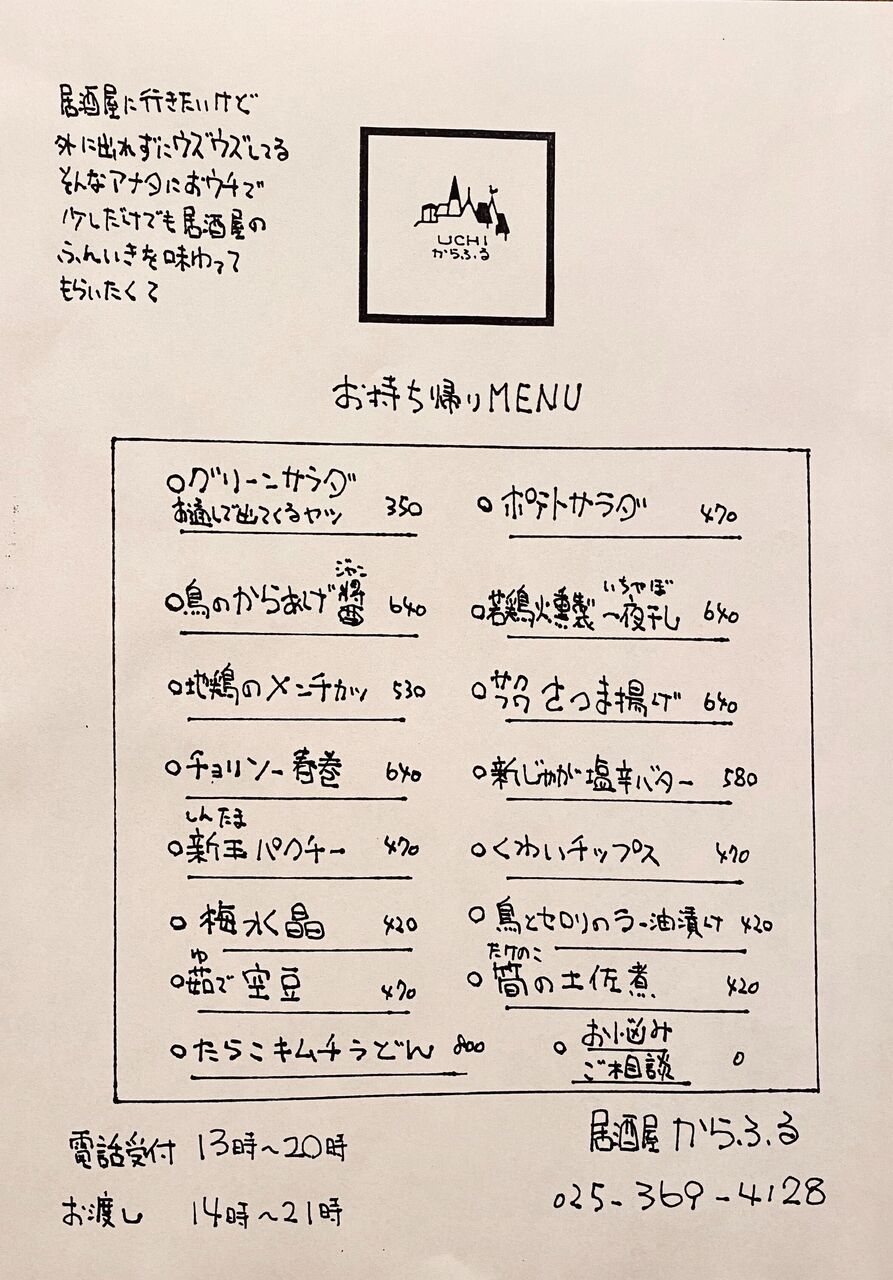 居酒屋に行きたいけど
外に出れずにウズウズしてる
そんなアナタにおウチで
少しだけでも居酒屋の
ふんいきを味わって
もらいたくて
UCHI
からふる
お持ち帰りMENU
○グリーンサラダ
お通しで出てくるヤツ 350
○ポテトサラダ 470
ジャン
○鳥のからあげ醤 640
いちゃぼ
○若鶏燻製一夜干し 640
○地鶏のメンチカツ 530
サクフワ
○さつま揚げ 640
○チョリソー春巻 640
○新じゃが塩辛バター 580
しんたま
○新玉パクチー 470
○くわいチップス 470
○梅水晶 420
○鳥とセロリのラー油漬け 420
ゆ
○茹で空豆 470
たけのこ
○筍の土佐煮 420
○たらこキムチうどん 800
○お悩み
ご相談 0
電話受付 13時~20時
お渡し 14時~21時
居酒屋 からふる
025-369-4128